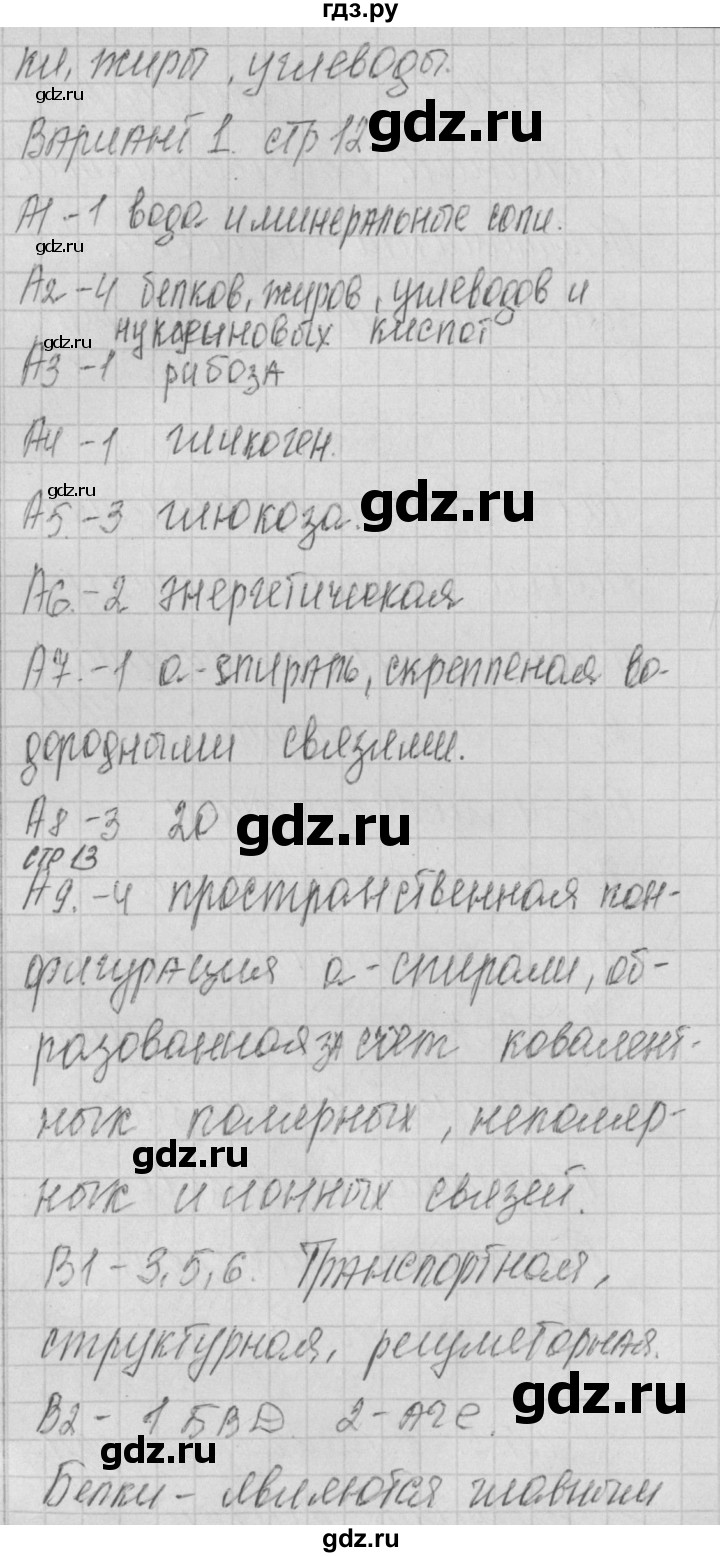 гдз.ру
ки, жиры, углеводы.
gdz.ru
Вариант 1. стр 12
gdz.ru
А1 - 1 вода и минеральные соли.
gdz.ru
А2 - 4 белков, жиров, углеводов и
gdz.ru
нуклеиновых кислот
А3 - 1 рибоза
А4 - 1 гликоген.
gdz.ru
gdz.ru
А5. - 3 глюкоза.
gdz.ru
А6. - 2 энергетическая
А7. - 1 а-спираль, скрепленая во-
дородными связями.
А8 - 3 20
gdz.ru
стр 13
А9. - 4 пространственная кон-
фигурация а-спирали, об-
разованная за счет ковалент-
ных полярных, неполяр-
gdz.ru
ных и ионных связей.
В1 - 3, 5, 6. Транспортная,
структурная, регуляторная.
gdz.ru
В2 - 1 БВД. 2 - АГЕ.
gdz.ru
Белки - являются главным
gdz.ru